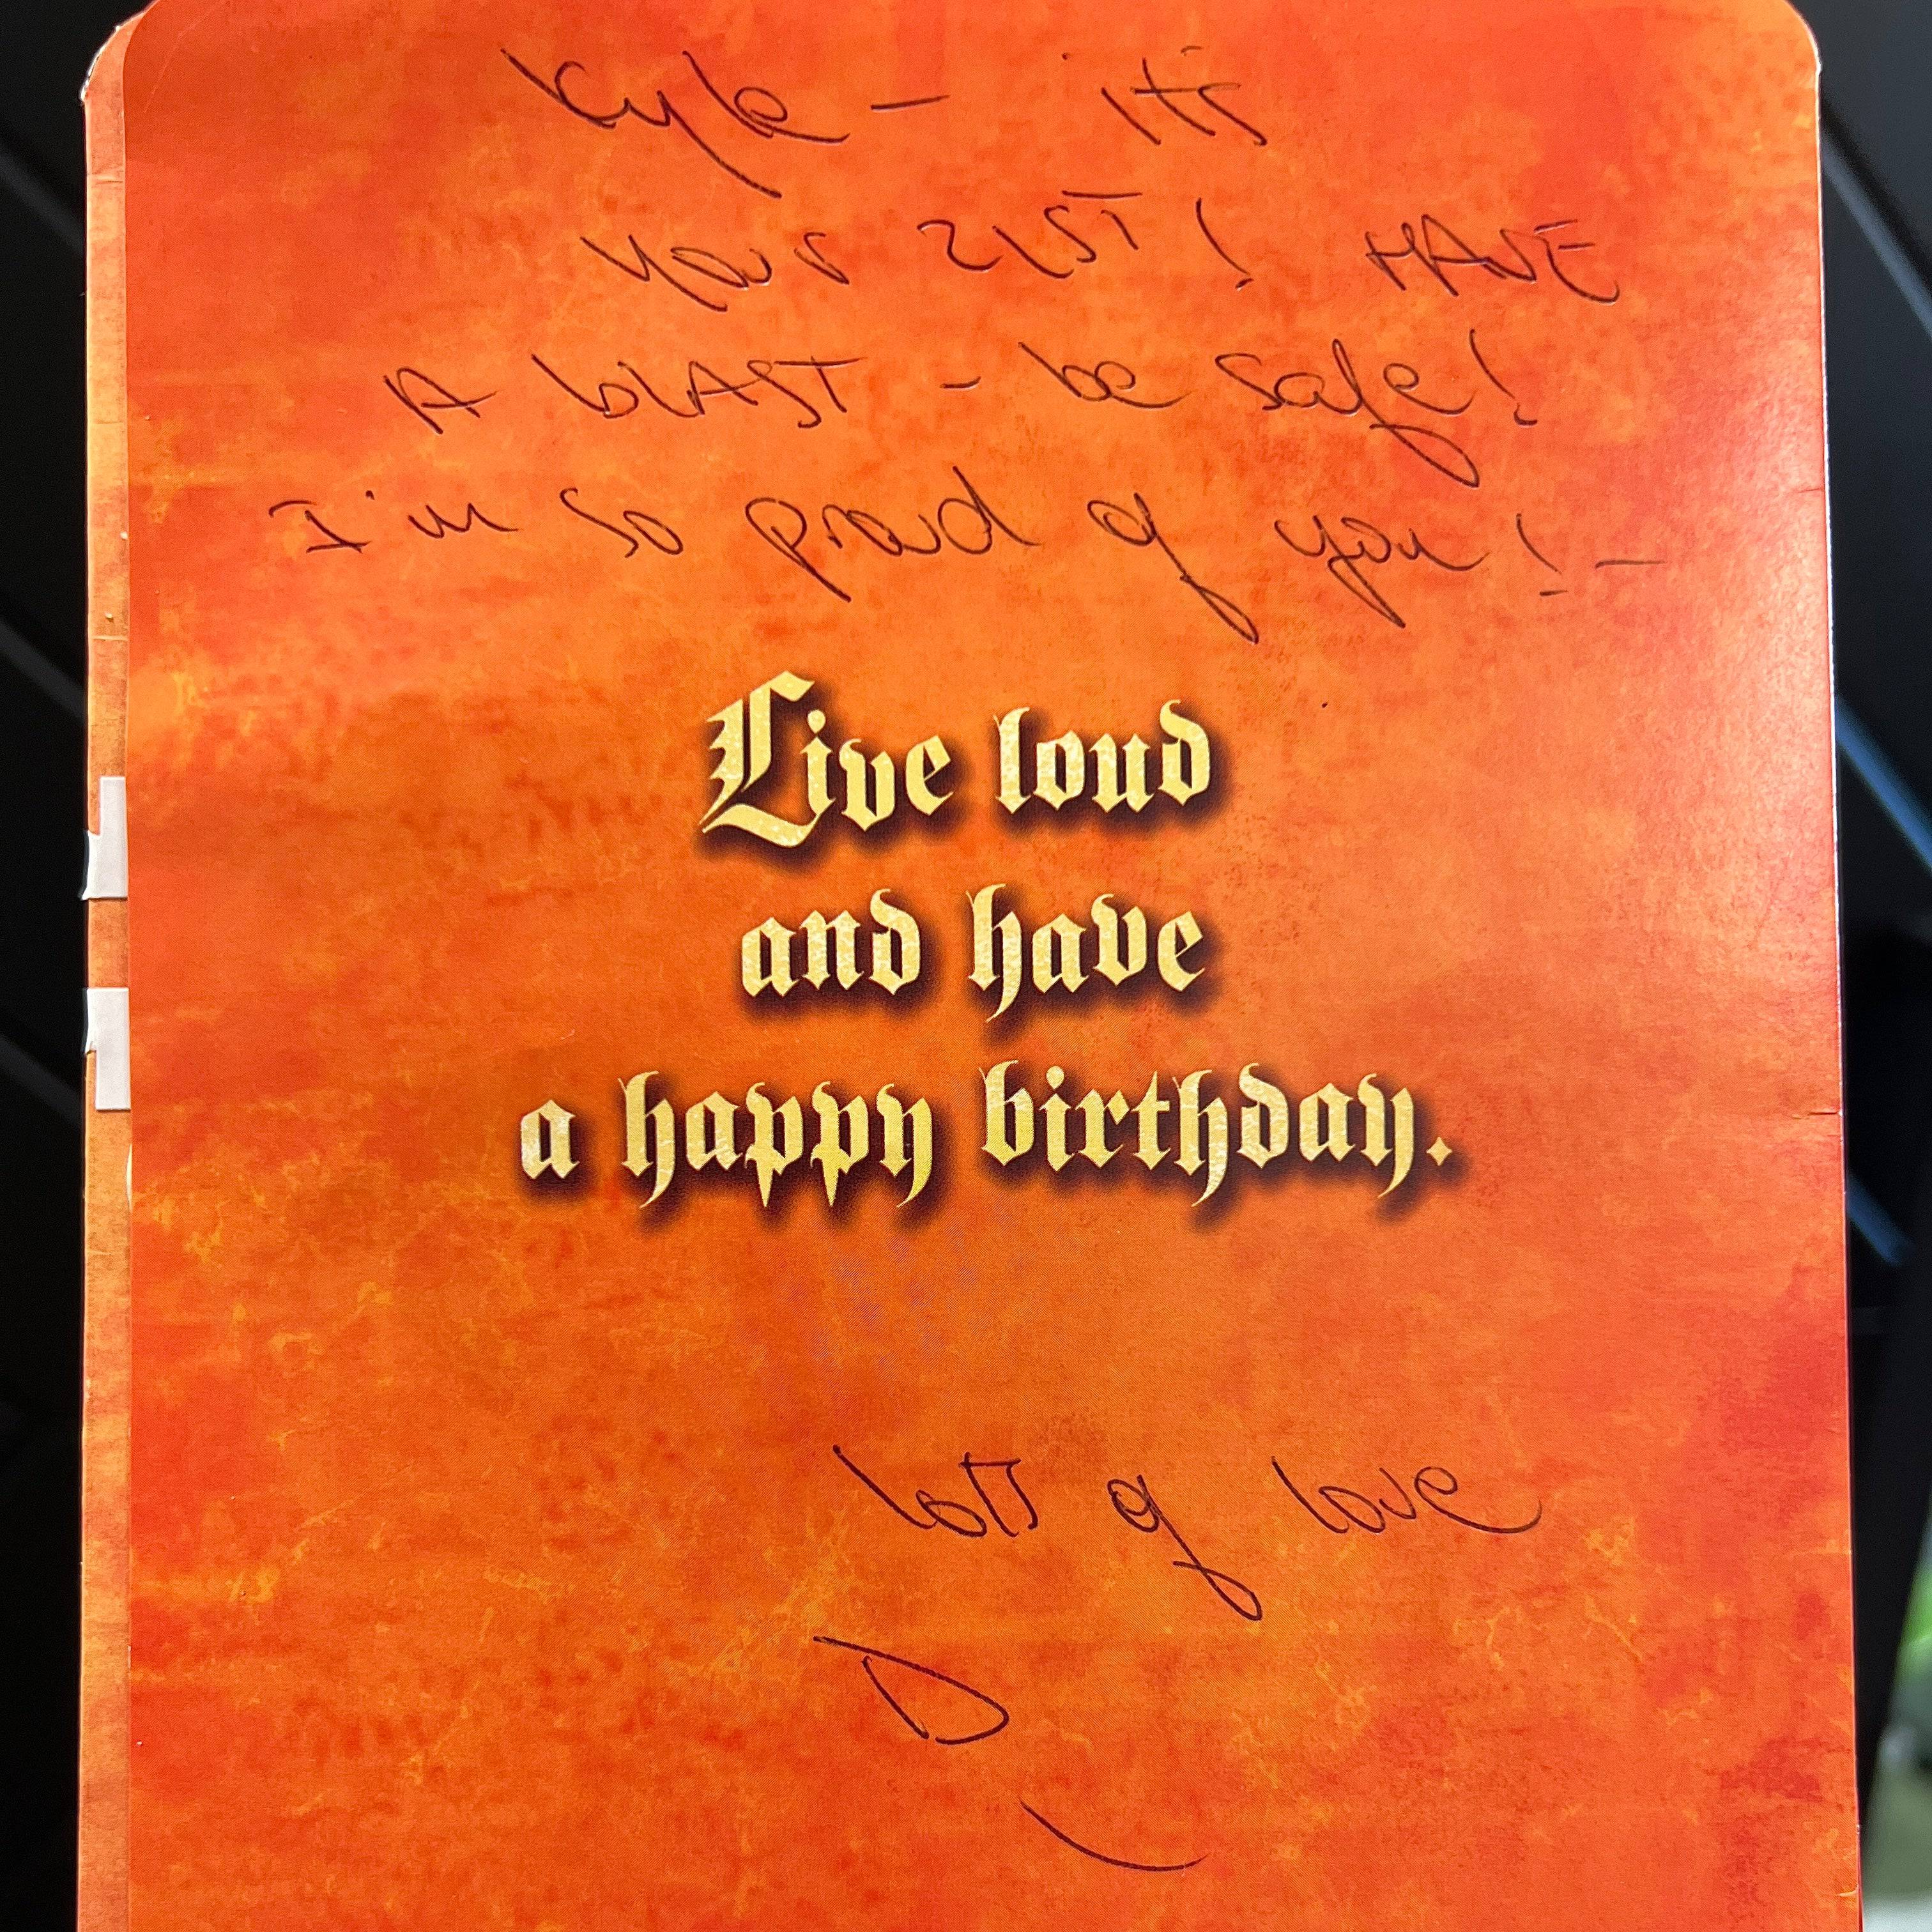 Kyle - it's
your 21ST! HAVE
A bLAST - be safe!
I'm so proud of you! -
Live loud
and have
a happy birthday.
lots of love
D